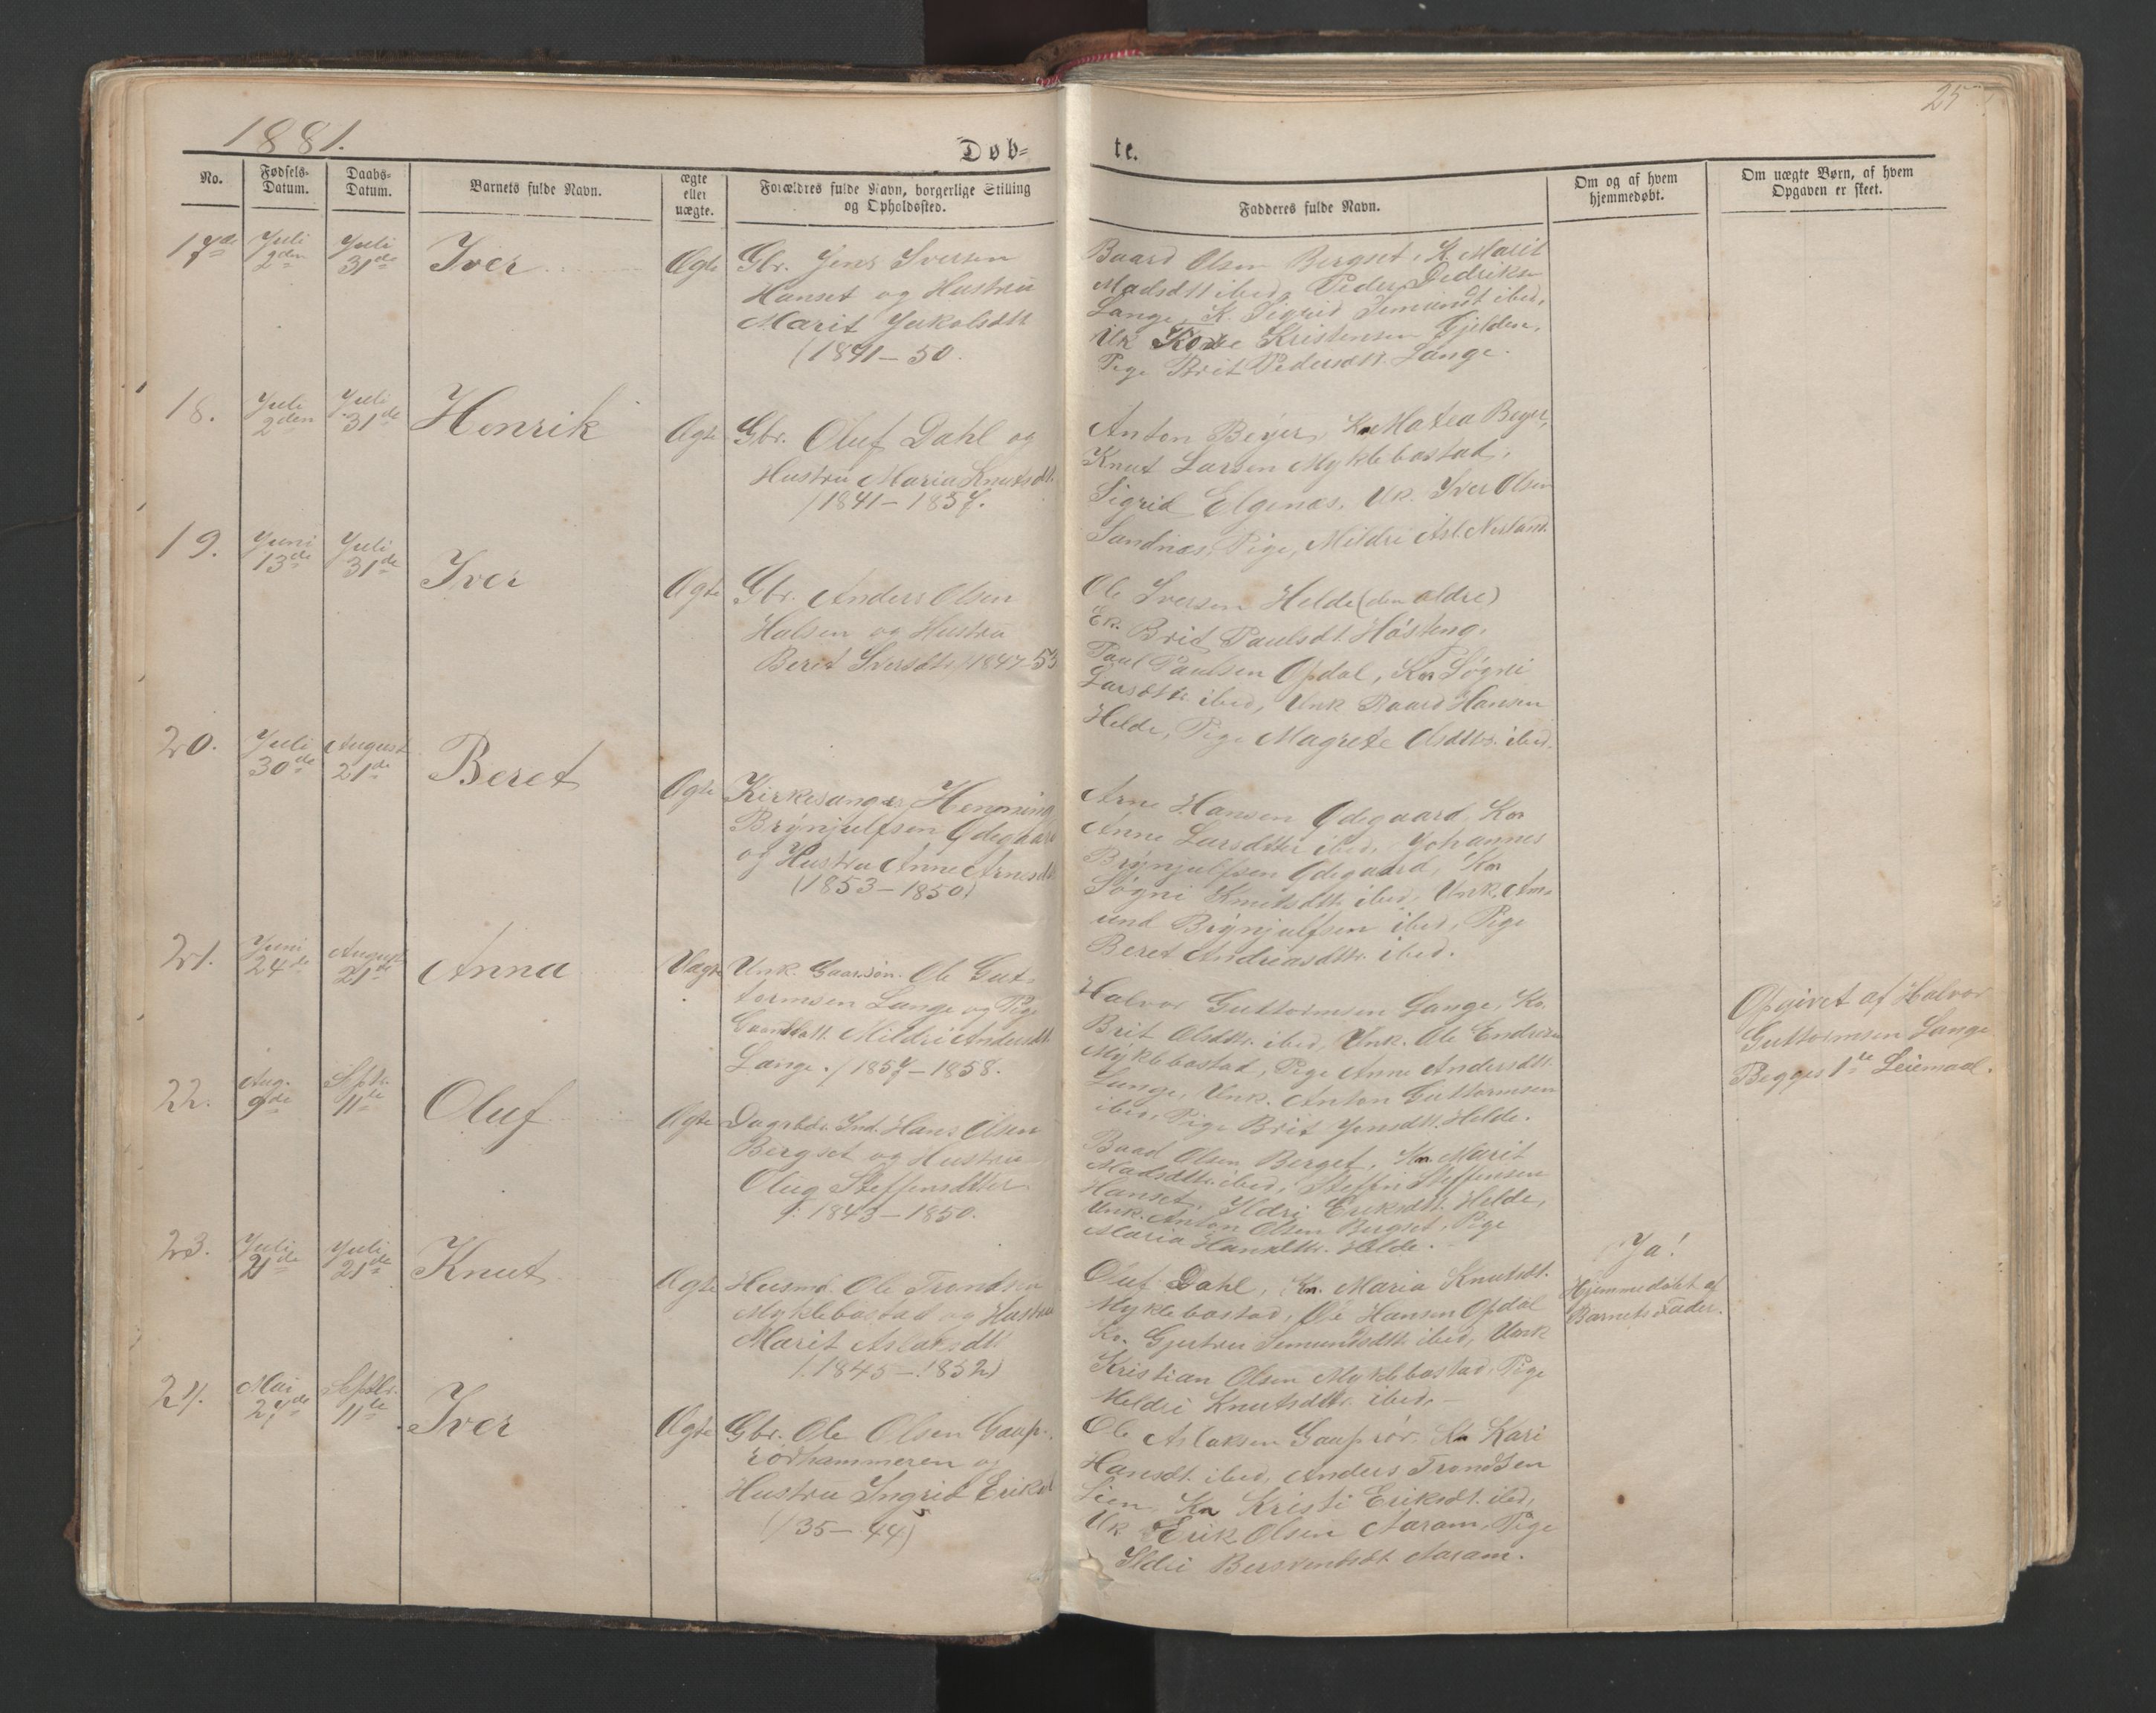 1881.
25
Døb=
te.
No.
Fødsels-
Datum.
Daabs-
Datum.
Barnets fulde Navn.
ægte
eller
uægte.
Forældres fulde Navn, borgerlige Stilling
og Opholdssted.
Fadderes fulde Navn.
Om og af hvem
hjemmedøbt.
Om uægte Børn, af hvem
Opgaven er skeet.
17de
Juli
2den
Juli
31de
Iver
Ægte
Gbr. Jens Iversen
Hanset og Hustru
Marit Jakobsdtt
(1841-50.
Baard Olsen Bergset, K. Marit
Madsdtt ibed, Peder Dedriksen
Lange, K. Sigrid Semundt ibed,
Uk Kristensen Gjelden,
Pige Brit Pedersdtt. Lange.
18.
Juli
2den
Juli
31de
Henrik
Ægte
Gbr. Oluf Dahl og
Hustru Maria Knutsdtt.
(1841-1857.
Anton Beyer, Kn Matea Beyer,
Knut Larsen Myklebostad,
Sigrid Elgenæs, Uk. Iver Olsen
Sandnæs, Pige, Mildri Asl. Nesland.
19.
Juni
13de
Juli
31de
Iver
Ægte
Gbr. Anders Olsen
Halsen og Hustru
Beret Iversdtt. (1847-53
Ole Iversen Helde (den ældre)
Ek. Brit Paulsdt. Høsteng,
Paul Paulsen Opdal, Kn Søgni
Larsdtt. ibed, Unk Baard Hansen
Helde, Pige Magrete Olsdtt. ibed.
20.
Juli
30de
August
21de
Beret
Ægte
Kirkesanger Henning
Brynjulfsen Ødegaard
og Hustru Anne Arnesdtt
(1853-1850)
Arne Hansen Ødegaard, Kn
Anne Larsdtter ibed, Johannes
Brynjulfsen Ødegaard, Kn
Søgni Knutsdtt. ibed, Unk. Am-
und Brynjulfsen ibed, Pige
Beret Andreasdtt. ibed.
21.
Juni
24de
August
21de
Anna
Uægte
Unk. Gaardsøn. Ole Gut-
tormsen Lange og Pige
Gaarddatt. Mildri Andersdtt
Lange. (1857-1858.
Halvor Guttormsen Lange, Kn.
Brit Olsdtt. ibed, Unk. Ole Endresen
Myklebostad, Pige Anne Andersdtt.
Lange, Unk. Anton Guttormsen
ibed, Pige Brit Jensdtt. Helde.
Opgivet af Halvor
Guttormsen Lange
Begges 1te Leiemaal.
22.
Aug.
9de
Septr.
11te
Oluf
Ægte
Dagarb. Ind. Hans Olsen
Bergset og Hustru
Olug Steffensdtter
(1843-1850.
Baad Olsen Berget, Kn. Marit
Madsdtt. ibed, Steffen Steffensen
Hanset, Ildri Eriksdtt. Helde,
Unk. Anton Olsen Bergset, Pige
Maria Hansdtt. Helde.
23.
Juli
21de
Juli
21de
Knut
Ægte
Husmd. Ole Trondsen
Myklebostad og Hustru
Marit Aslaksdtt
(1845-1852)
Oluf Dahl, Kn. Maria Knutsdt.
Myklebostad, Ole Hansen Opdal
Kn. Gjertru Semundsdtt. ibed, Unk
Kristian Olsen Myklebostad, Pige
Meldri Knutsdtt. ibed.
Ja!
Hjemmedøbt af
Barnets Fader.
24.
Mai
27de
Septbr.
11te
Iver
Ægte
Gbr. Ole Olsen Gaup-
rørhammeren og
Hustru Ingrid Eriksdt
(35-44)
Ole Aslaksen Gauprør, Kn Kari
Hansdt. ibed, Anders Trondsen
Lien, Kn Kristi Eriksdt. ibed,
Uk Erik Olsen Aaram, Pige
Ildri Aaram.